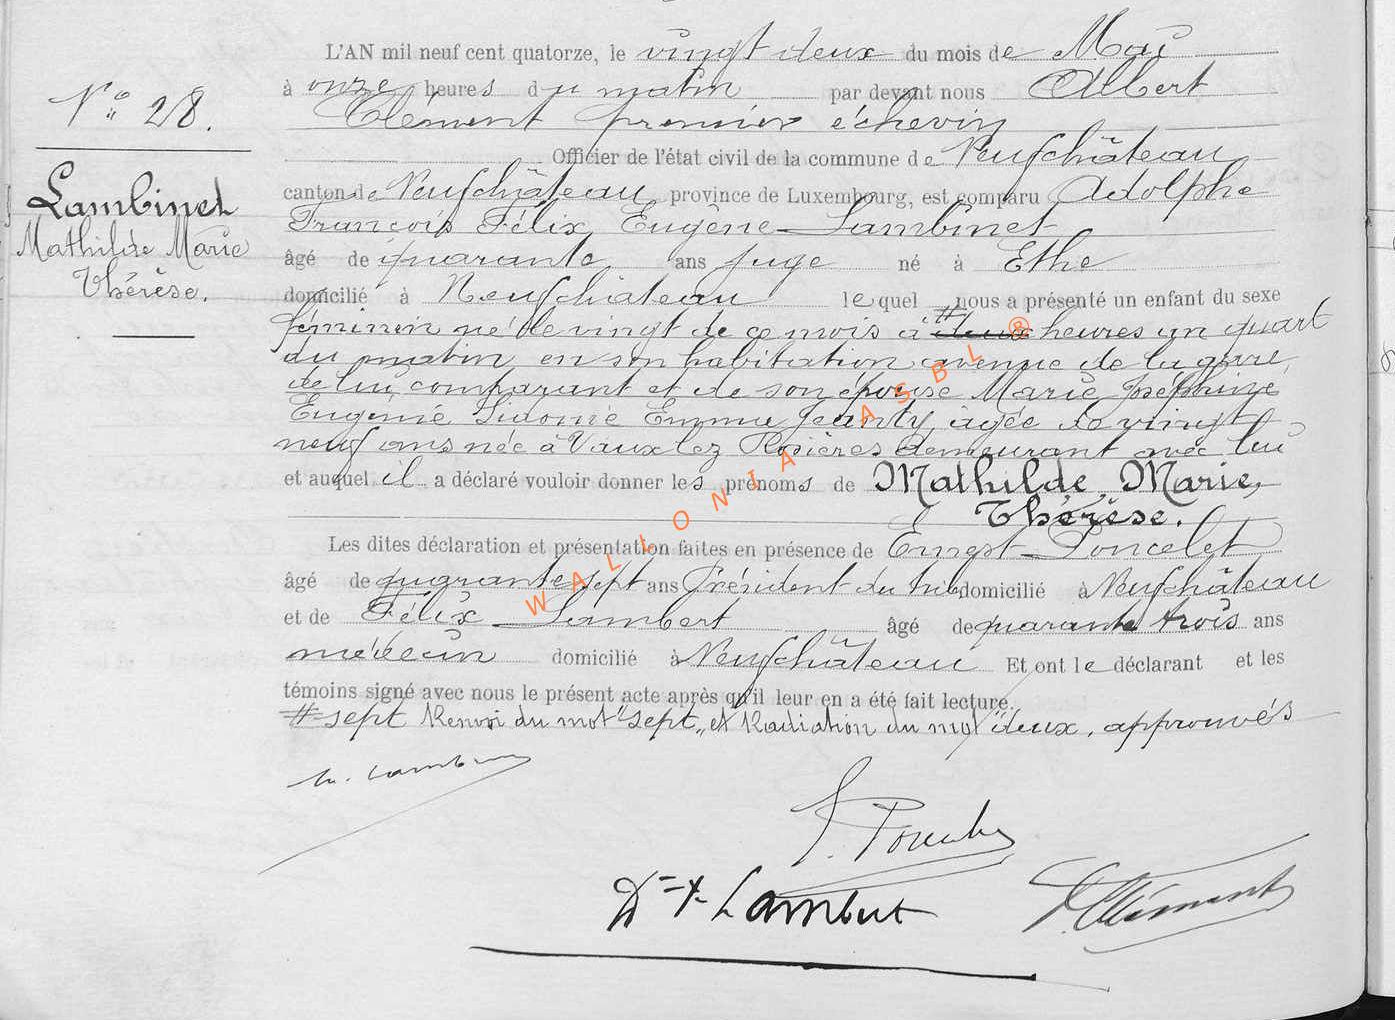 N° 28.
Lambinet
Mathilde Marie
Thérèse.
L'AN mil neuf cent quatorze, le vingt deux du mois de Mai
à onze heures du matin par devant nous Albert
Clément premier échevin
Officier de l'état civil de la commune de Neufchâteau
canton de Neufchâteau province de Luxembourg, est comparu Adolphe
François Félix Eugène Lambinet
âgé de quarante ans juge né à Ethe
domicilié à Neufchateau lequel nous a présenté un enfant du sexe
féminin né le vingt de ce mois à # deux heures un quart
du matin en son habitation avenue de la gare,
de lui comparant et de son épouse Marie Joséphine
Eugenie Sidonie Emma Jeanty, âgée de vingt
neuf ans née à Vaux lez Rosières demeurant avec lui
et auquel il a déclaré vouloir donner les prénoms de Mathilde, Marie,
Thérèse.
Les dites déclaration et présentation faites en présence de Ernest Poncelet
âgé de quarante sept ans Président du trib. domicilié à Neufchâteau
et de Félix Lambert âgé de quarante trois ans
médecin domicilié à Neufchâteau Et ont le déclarant et les
témoins signé avec nous le présent acte après qu'il leur en a été fait lecture.
# sept Renvoi du mot "sept" et Radiation du mot "deux, approuvés
Lambinet
E. Poncelet
Dr F. Lambert
A. Clément
WALLONIA ASBL ®